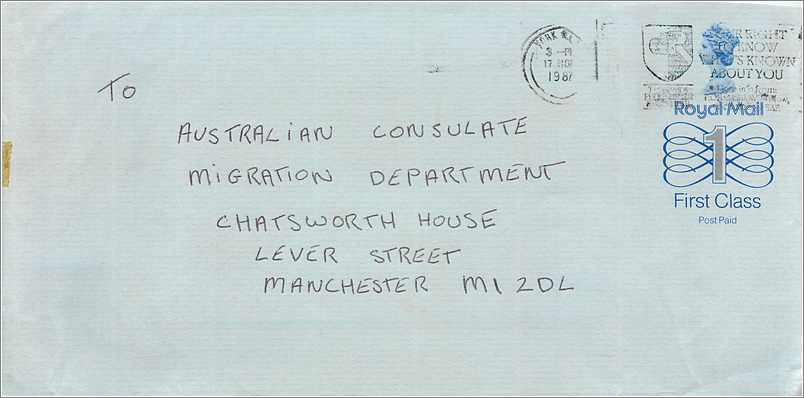 YORK
3 - PM
17 NOV
1987
RIGHT
TO KNOW
WHAT'S KNOWN
ABOUT YOU
Royal Mail
1
First Class
Post Paid
To
AUSTRALIAN CONSULATE
MIGRATION DEPARTMENT
CHATSWORTH HOUSE
LEVER STREET
MANCHESTER M1 2DL